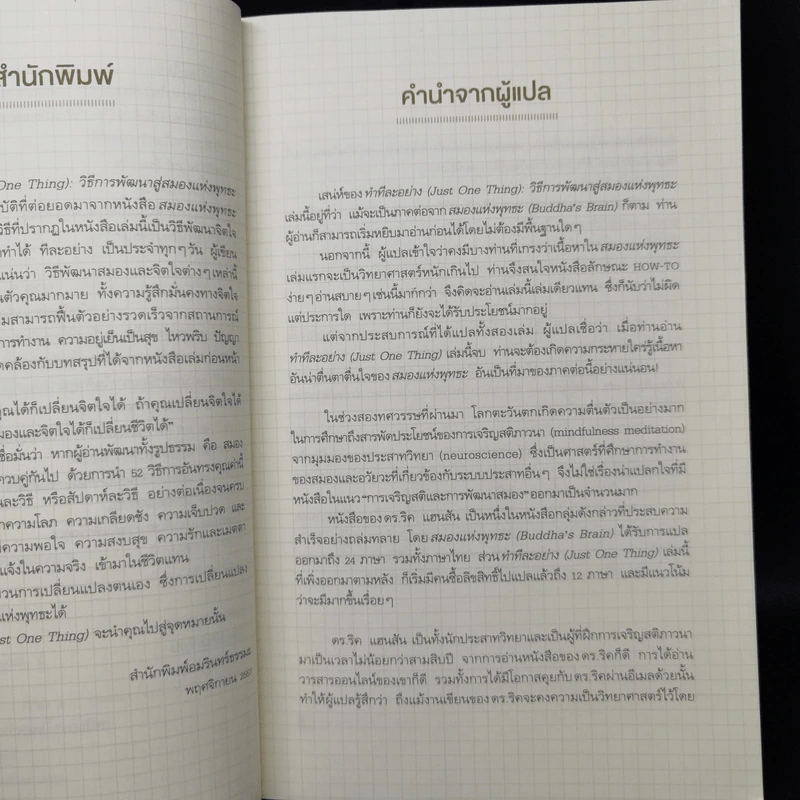 สำนักพิมพ์
One Thing): วิธีการพัฒนาสู่สมองแห่งพุทธะ
บัติที่ต่อยอดมาจากหนังสือ สมองแห่งพุทธะ
วิธีที่ปรากฏในหนังสือเล่มนี้เป็นวิธีพัฒนาจิตใจ
ทำได้ ทีละอย่าง เป็นประจำทุกๆวัน ผู้เขียน
แน่นว่า วิธีพัฒนาสมองและจิตใจต่างๆเหล่านี้
นตัวคุณมากมาย ทั้งความรู้สึกมั่นคงทางจิตใจ
มสามารถฟื้นตัวอย่างรวดเร็วจากสถานการณ์
การทำงาน ความอยู่เย็นเป็นสุข ไหวพริบ ปัญญา
ดคล้องกับบทสรุปที่ได้จากหนังสือเล่มก่อนหน้า
คุณได้ก็เปลี่ยนจิตใจได้ ถ้าคุณเปลี่ยนจิตใจได้
มองและจิตใจได้ก็เปลี่ยนชีวิตได้”
ชื่อมั่นว่า หากผู้อ่านพัฒนาทั้งรูปธรรม คือ สมอง
ควบคู่กันไป ด้วยการนำ 52 วิธีการอันทรงคุณค่านี้
นละวิธี หรือสัปดาห์ละวิธี อย่างต่อเนื่องจนครบ
าความโลภ ความเกลียดชัง ความเจ็บปวด และ
มีความพอใจ ความสงบสุข ความรักและเมตตา
แจ้งในความจริง เข้ามาในชีวิตแทน
วนการเปลี่ยนแปลงตนเอง ซึ่งการเปลี่ยนแปลง
แห่งพุทธะได้
Just One Thing) จะนำคุณไปสู่จุดหมายนั้น
สำนักพิมพ์อมรินทร์ธรรมะ
พฤศจิกายน
คำนำจากผู้แปล
เสน่ห์ของ ทำทีละอย่าง (Just One Thing): วิธีการพัฒนาสู่สมองแห่งพุทธะ
เล่มนี้อยู่ที่ว่า แม้จะเป็นภาคต่อจาก สมองแห่งพุทธะ (Buddha's Brain) ก็ตาม ท่าน
ผู้อ่านก็สามารถเริ่มหยิบมาอ่านก่อนได้โดยไม่ต้องมีพื้นฐานใดๆ
นอกจากนี้ ผู้แปลเข้าใจว่าคงมีบางท่านที่เกรงว่าเนื้อหาใน สมองแห่งพุทธะ
เล่มแรกจะเป็นวิทยาศาสตร์หนักเกินไป ท่านจึงสนใจหนังสือลักษณะ HOW-TO
ง่ายๆอ่านสบายๆเช่นนี้มากกว่า จึงคิดจะอ่านเล่มนี้เล่มเดียวแทน ซึ่งก็นับว่าไม่ผิด
แต่ประการใด เพราะท่านก็ยังจะได้รับประโยชน์มากอยู่
แต่จากประสบการณ์ที่ได้แปลทั้งสองเล่ม ผู้แปลเชื่อว่า เมื่อท่านอ่าน
ทำทีละอย่าง (Just One Thing) เล่มนี้จบ ท่านจะต้องเกิดความกระหายใคร่รู้เนื้อหา
อันน่าตื่นตาตื่นใจของ สมองแห่งพุทธะ อันเป็นที่มาของภาคต่อนี้อย่างแน่นอน!
ในช่วงสองทศวรรษที่ผ่านมา โลกตะวันตกเกิดความตื่นตัวเป็นอย่างมาก
ในการศึกษาถึงสารพัดประโยชน์ของการเจริญสติภาวนา (mindfulness meditation)
จากมุมมองของประสาทวิทยา (neuroscience) ซึ่งเป็นศาสตร์ที่ศึกษาการทำงาน
ของสมองและอวัยวะที่เกี่ยวข้องกับระบบประสาทอื่นๆ จึงไม่ใช่เรื่องน่าแปลกใจที่มี
หนังสือในแนว “การเจริญสติและการพัฒนาสมอง” ออกมาเป็นจำนวนมาก
หนังสือของ ดร.ริค แฮนสัน เป็นหนึ่งในหนังสือกลุ่มดังกล่าวที่ประสบความ
สำเร็จอย่างถล่มทลาย โดย สมองแห่งพุทธะ (Buddha's Brain) ได้รับการแปล
ออกมาถึง 24 ภาษา รวมทั้งภาษาไทย ส่วน ทำทีละอย่าง (Just One Thing) เล่มนี้
ที่เพิ่งออกมาตามหลัง ก็เริ่มมีคนซื้อลิขสิทธิ์ไปแปลแล้วถึง 12 ภาษา และมีแนวโน้ม
ว่าจะมีมากขึ้นเรื่อยๆ
ดร.ริค แฮนสัน เป็นทั้งนักประสาทวิทยาและเป็นผู้ที่ฝึกการเจริญสติภาวนา
มาเป็นเวลาไม่น้อยกว่าสามสิบปี จากการอ่านหนังสือของ ดร.ริคก็ดี การได้อ่าน
วารสารออนไลน์ของเขาก็ดี รวมทั้งการได้มีโอกาสคุยกับ ดร.ริคผ่านอีเมลด้วยนั้น
ทำให้ผู้แปลรู้สึกว่า ถึงแม้งานเขียนของ ดร.ริคจะคงความเป็นวิทยาศาสตร์ไว้โดย